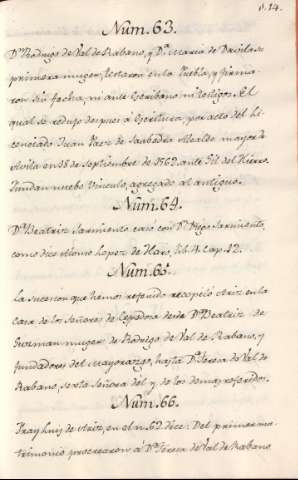 p.14.
Num.63.
Dn Rodrigo de Val de Rabano, y Da. Maria de Davila su
primera muger, testaron en la Puebla, y firma-
ron sin fecha, ni ante Escribano ni testigos. El
qual se reduxo despues a Escritura, por auto del Li-
cenciado Juan Paez de Saabedra Alcalde mayor de
Avila en 18 de Septiembre de 1562 ante Gil del Hierro.
Fundan nuebo Vinculo, agregado al antiguo.
Num.64.
Da. Beatriz Sarmiento casó con Dn. Diego Sarmiento,
como dice Alonso Lopez de Haro, lib. 4. cap. 12.
Num.65.
La sucesion que hemos referido recopiló Ariz en la
Casa de los Señores de Cespedosa desde Da. Beatriz de
Guzman muger de Rodrigo de Val de Rabano, y
fundadores del Mayorazgo, hasta Da. Teresa de Val de
Rabano, sexta Señora del y de los demas referidos.
Num.66.
Fray Luis de Ariz, en el n. 62. dice: Del primer ma-
trimonio procrearon á Da. Teresa de Val de Rabano